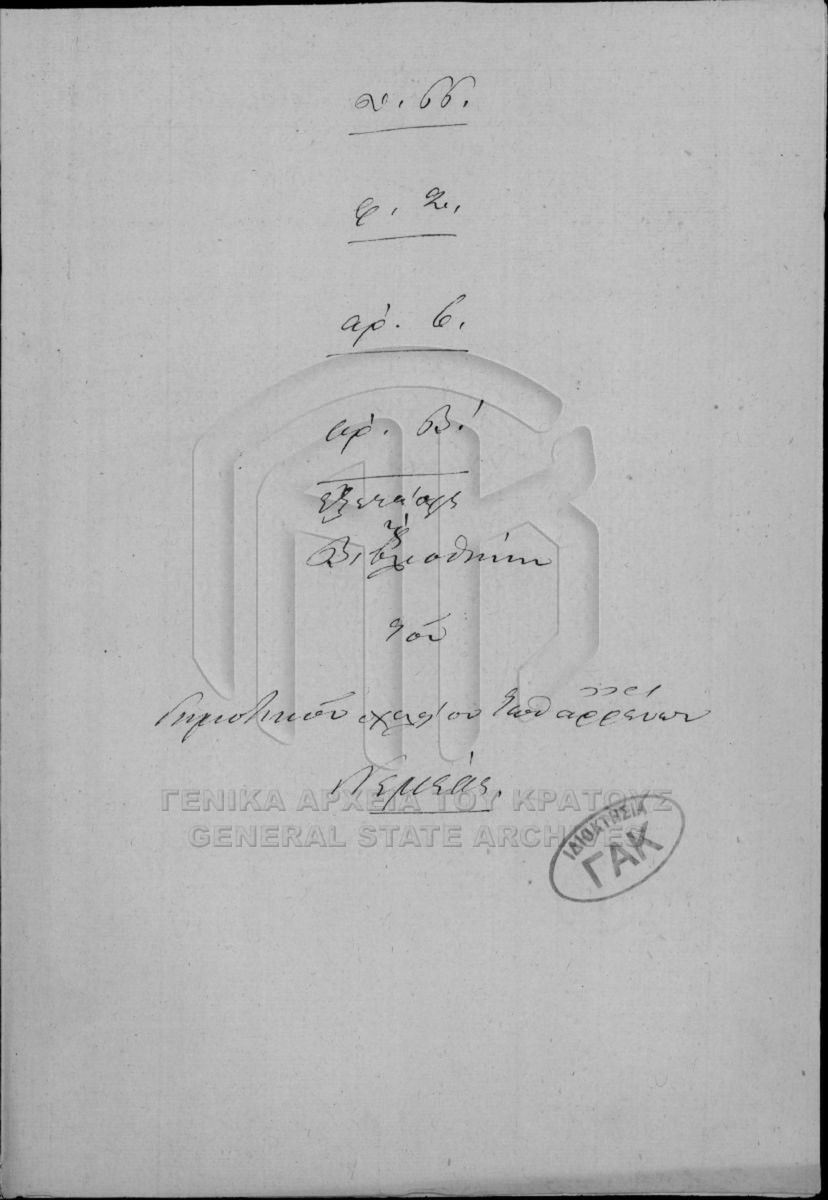 φ. 2.
αρ. 6.
αρ. Β.'
της
Βιβλιοθήκη
τού
δημοτικού σχολείου των αρρένων
Νεμέας.
ΓΕΝΙΚΑ ΑΡΧΕΙΑ ΤΟΥ ΚΡΑΤΟΥΣ
GENERAL STATE ARCHIVES
ΙΔΙΟΚΤΗΣΙΑ
ΓΑΚ